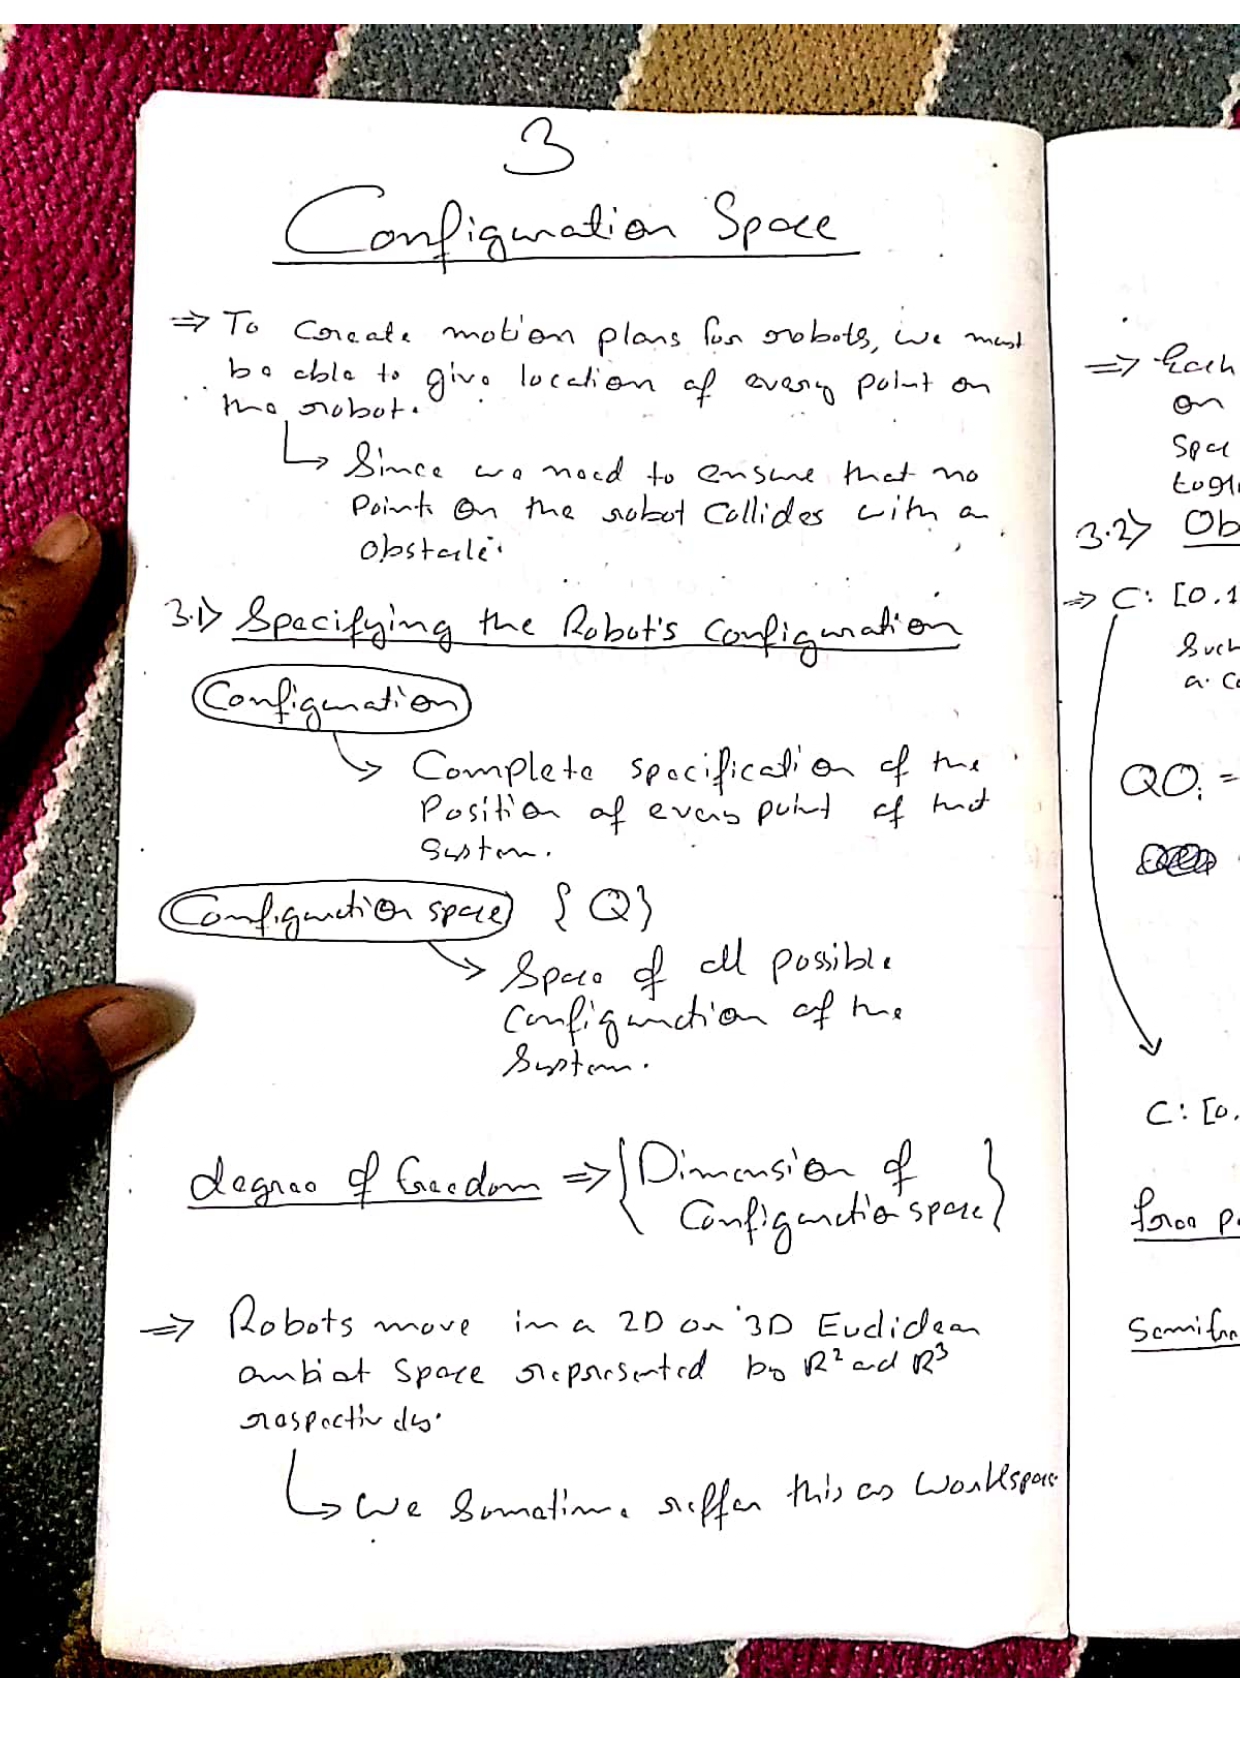 3
Configuration Space
⇒ To create motion plans for robots, we must
be able to give location of every point on
the robot.
↳ Since we need to ensure that no
Point on the robot Collides with a
Obstacle.
3.1> Specifying the Robot's Configuration
Configuration
↘ Complete specification of the
Position of every point of that
System.
Configuration space {Q}
↘ Space of all possible
Configuration of the
System.
degree of freedom ⇒ {Dimension of
Configuration space}
⇒ Robots move in a 2D or 3D Euclidean
ambiat Space represented by R² and R³
respectively.
↳ We Sometime reffer this as Workspace
⇒ Each
on
Spac
3.2> Ob
⇒ C: [0,1
Such
a. Co
QOᵢ =
C: [0,
force p
Semifre